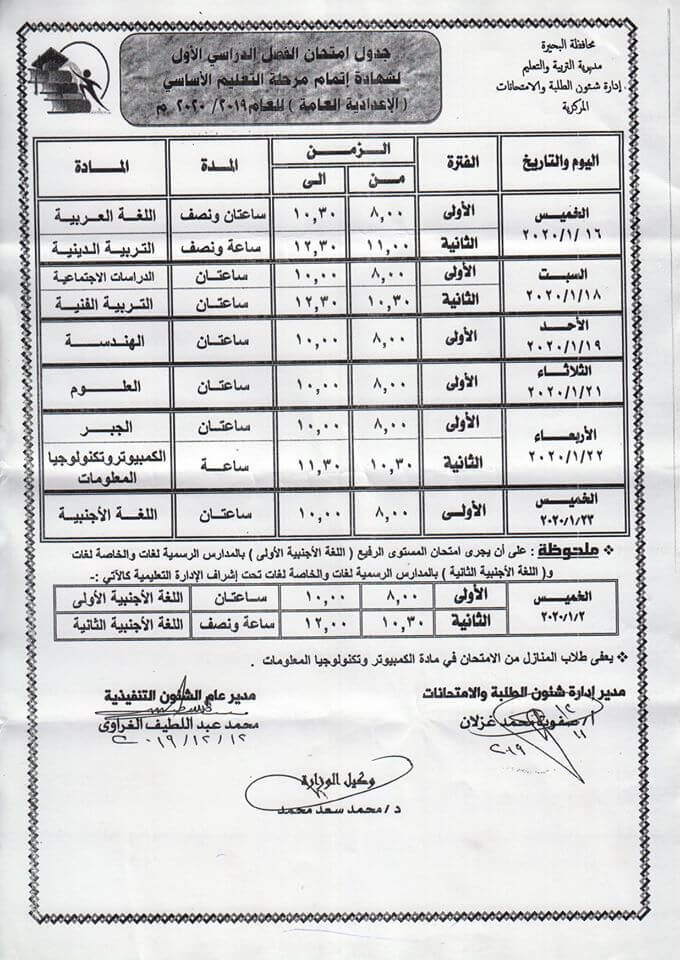 محافظة البحيرة
مديرية التربية والتعليم
إدارة شئون الطلبة والامتحانات
المركزية
جدول امتحان الفصل الدراسي الأول
لشهادة إتمام مرحلة التعليم الأساسي
( الإعدادية العامة ) للعام ٢٠١٩/ ٢٠٢٠ م
اليوم والتاريخ الفترة الزمـن المدة المـادة
مـن الى
الخميس ٢٠٢٠/١/١٦ الأولى ٨,٠٠ ١٠,٣٠ ساعتان ونصف اللغة العربية
الثانية ١١,٠٠ ١٢,٣٠ ساعة ونصف التربية الدينية
السبت ٢٠٢٠/١/١٨ الأولى ٨,٠٠ ١٠,٠٠ ساعتان الدراسات الاجتماعية
الثانية ١٠,٣٠ ١٢,٣٠ ساعتان التربية الفنية
الأحد ٢٠٢٠/١/١٩ الأولى ٨,٠٠ ١٠,٠٠ ساعتان الهندسة
الثلاثاء ٢٠٢٠/١/٢١ الأولى ٨,٠٠ ١٠,٠٠ ساعتان العلوم
الأربعاء ٢٠٢٠/١/٢٢ الأولى ٨,٠٠ ١٠,٠٠ ساعتان الجبر
الثانية ١٠,٣٠ ١١,٣٠ ساعة الكمبيوتر وتكنولوجيا المعلومات
الخميس ٢٠٢٠/١/٢٣ الأولى ٨,٠٠ ١٠,٠٠ ساعتان اللغة الأجنبية
ملحوظة : على أن يجرى امتحان المستوى الرفيع ( اللغة الأجنبية الأولى ) بالمدارس الرسمية لغات والخاصة لغات
و( اللغة الأجنبية الثانية ) بالمدارس الرسمية لغات والخاصة لغات تحت إشراف الإدارة التعليمية كالآتي :-
الخميس ٢٠٢٠/١/٢ الأولى ٨,٠٠ ١٠,٠٠ ساعتان اللغة الأجنبية الأولى
الثانية ١٠,٣٠ ١٢,٠٠ ساعة ونصف اللغة الأجنبية الثانية
يعفى طلاب المنازل من الامتحان في مادة الكمبيوتر وتكنولوجيا المعلومات .
مدير إدارة شئون الطلبة والامتحانات
أ/ صفوت محمد غزلان
١٢
١١
٢٠١٩
مدير عام الشئون التنفيذية
محمد عبد اللطيف الغراوى
٢٠١٩/١٢/١٢
وكيل الوزارة
د/ محمد سعد محمد